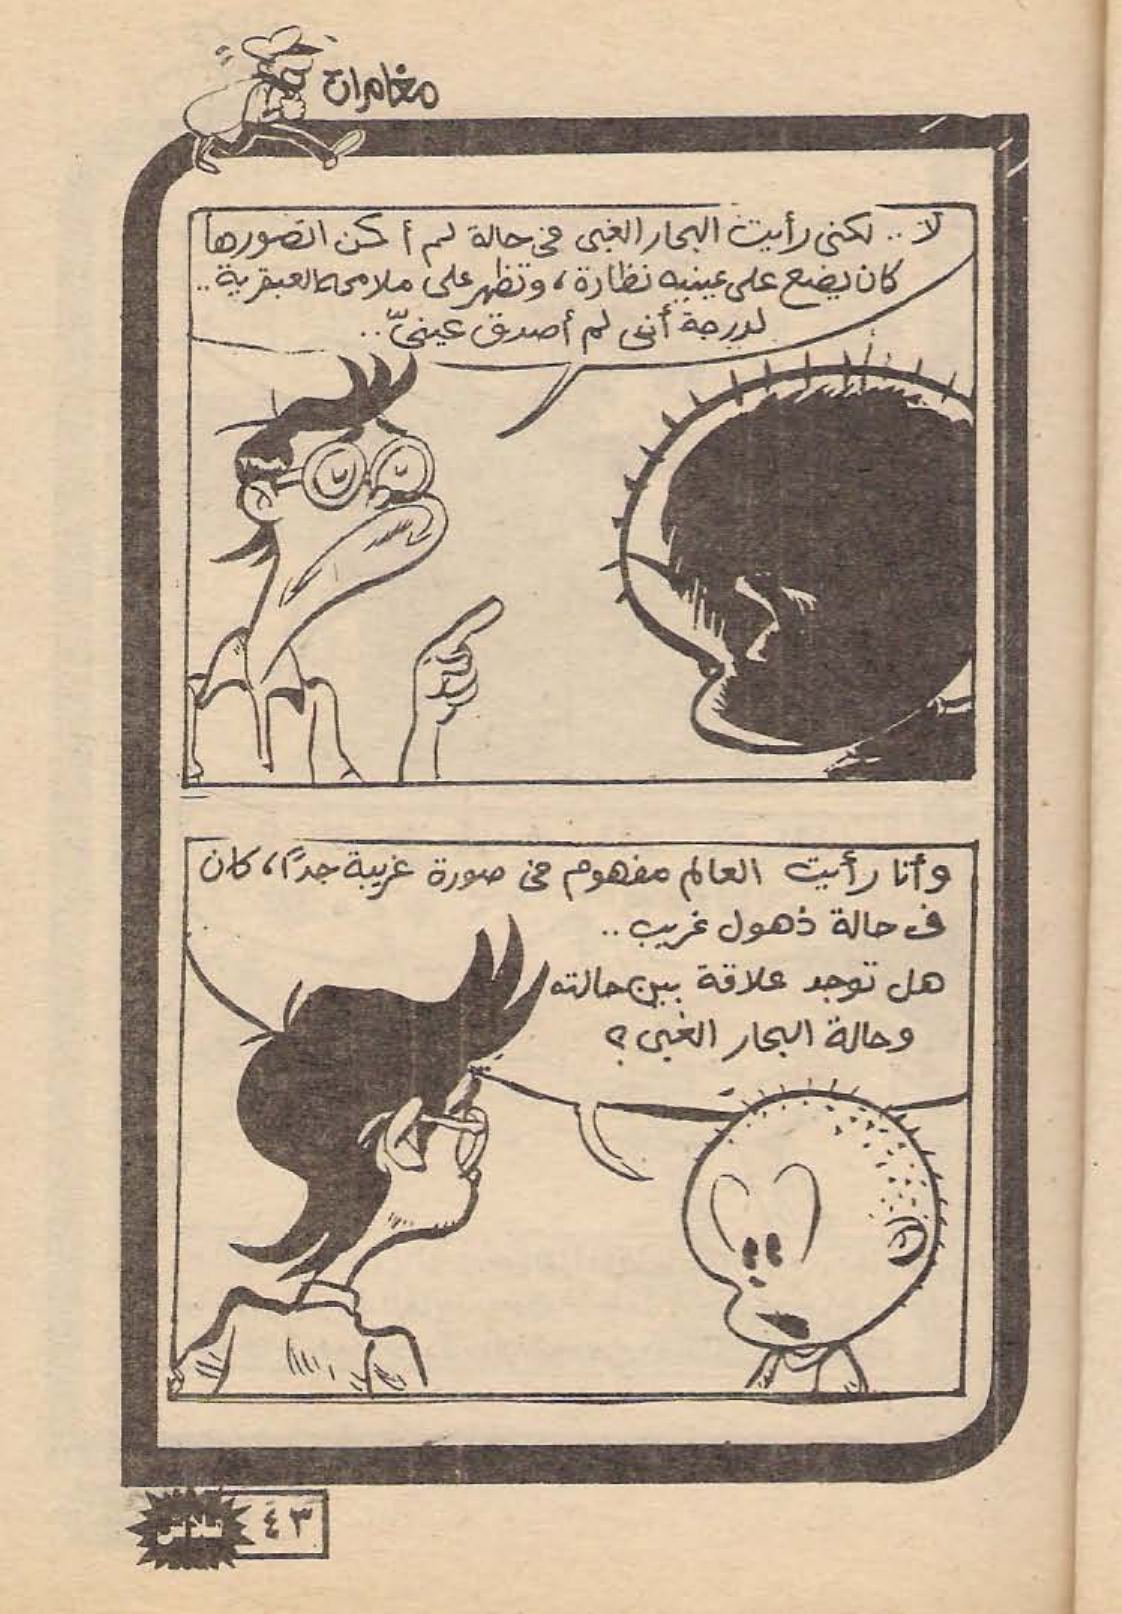 مغامرات
لا .. لكنى رأيت البحار الغبى فى حالة لم أكن اتصورها
كان يضع على عينيه نظارة، وتظهر على ملامحه العبقرية ..
لدرجة أننى لم أصدق عينىّ ..
وأنا رأيت العالم مفهوم فى صورة غريبة جدًا، كان
فى حالة ذهول غريب ..
هل توجد علاقة بين حالته
وحالة البحار الغبى ؟
فلاش ٤٣